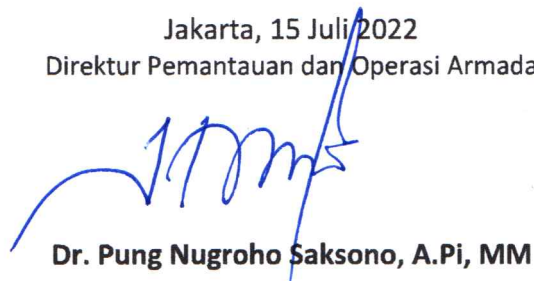 Jakarta, 15 Juli 2022
Direktur Pemantauan dan Operasi Armada
Dr. Pung Nugroho Saksono, A.Pi, MM